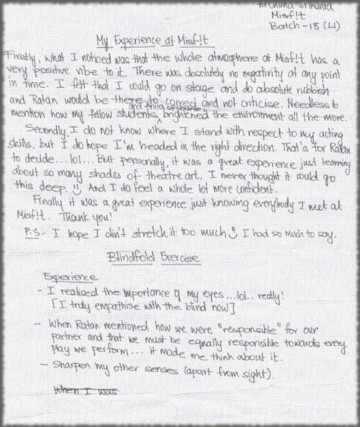 Archana
Misf!t
Batch - 18 (L1)
My Experience at Misf!t
Firstly, what I noticed was that the whole atmosphere at Misf!t has a
very positive vibe to it. There was absolutely no negativity at any point
in time. I felt that I could go on stage and do absolute rubbish
and Ratan would be there to correct and not criticise. Needless to
mention how my fellow students brightened the environment all the more.
Secondly, I do not know where I stand with respect to my acting
skills, but I do hope I'm headed in the right direction. That's for Ratan
to decide...lol... But personally, it was a great experience just learning
about so many shades of theatre art. I never thought it could go
this deep. And I do feel a whole lot more confident.
Finally it was a great experience just knowing everybody I met at
Misf!t. Thank you!
P.S - I hope I didn't stretch it too much I had so much to say.
Blindfold Exercise
Experience
- I realised the importance of my eyes...lol.. really!
[I truly empathise with the blind now]
- When Ratan mentioned how we were "responsible" for our
partner and that we must be equally responsible towards every
play we perform... it made me think about it.
- Sharpen my other senses (apart from sight).
When I was